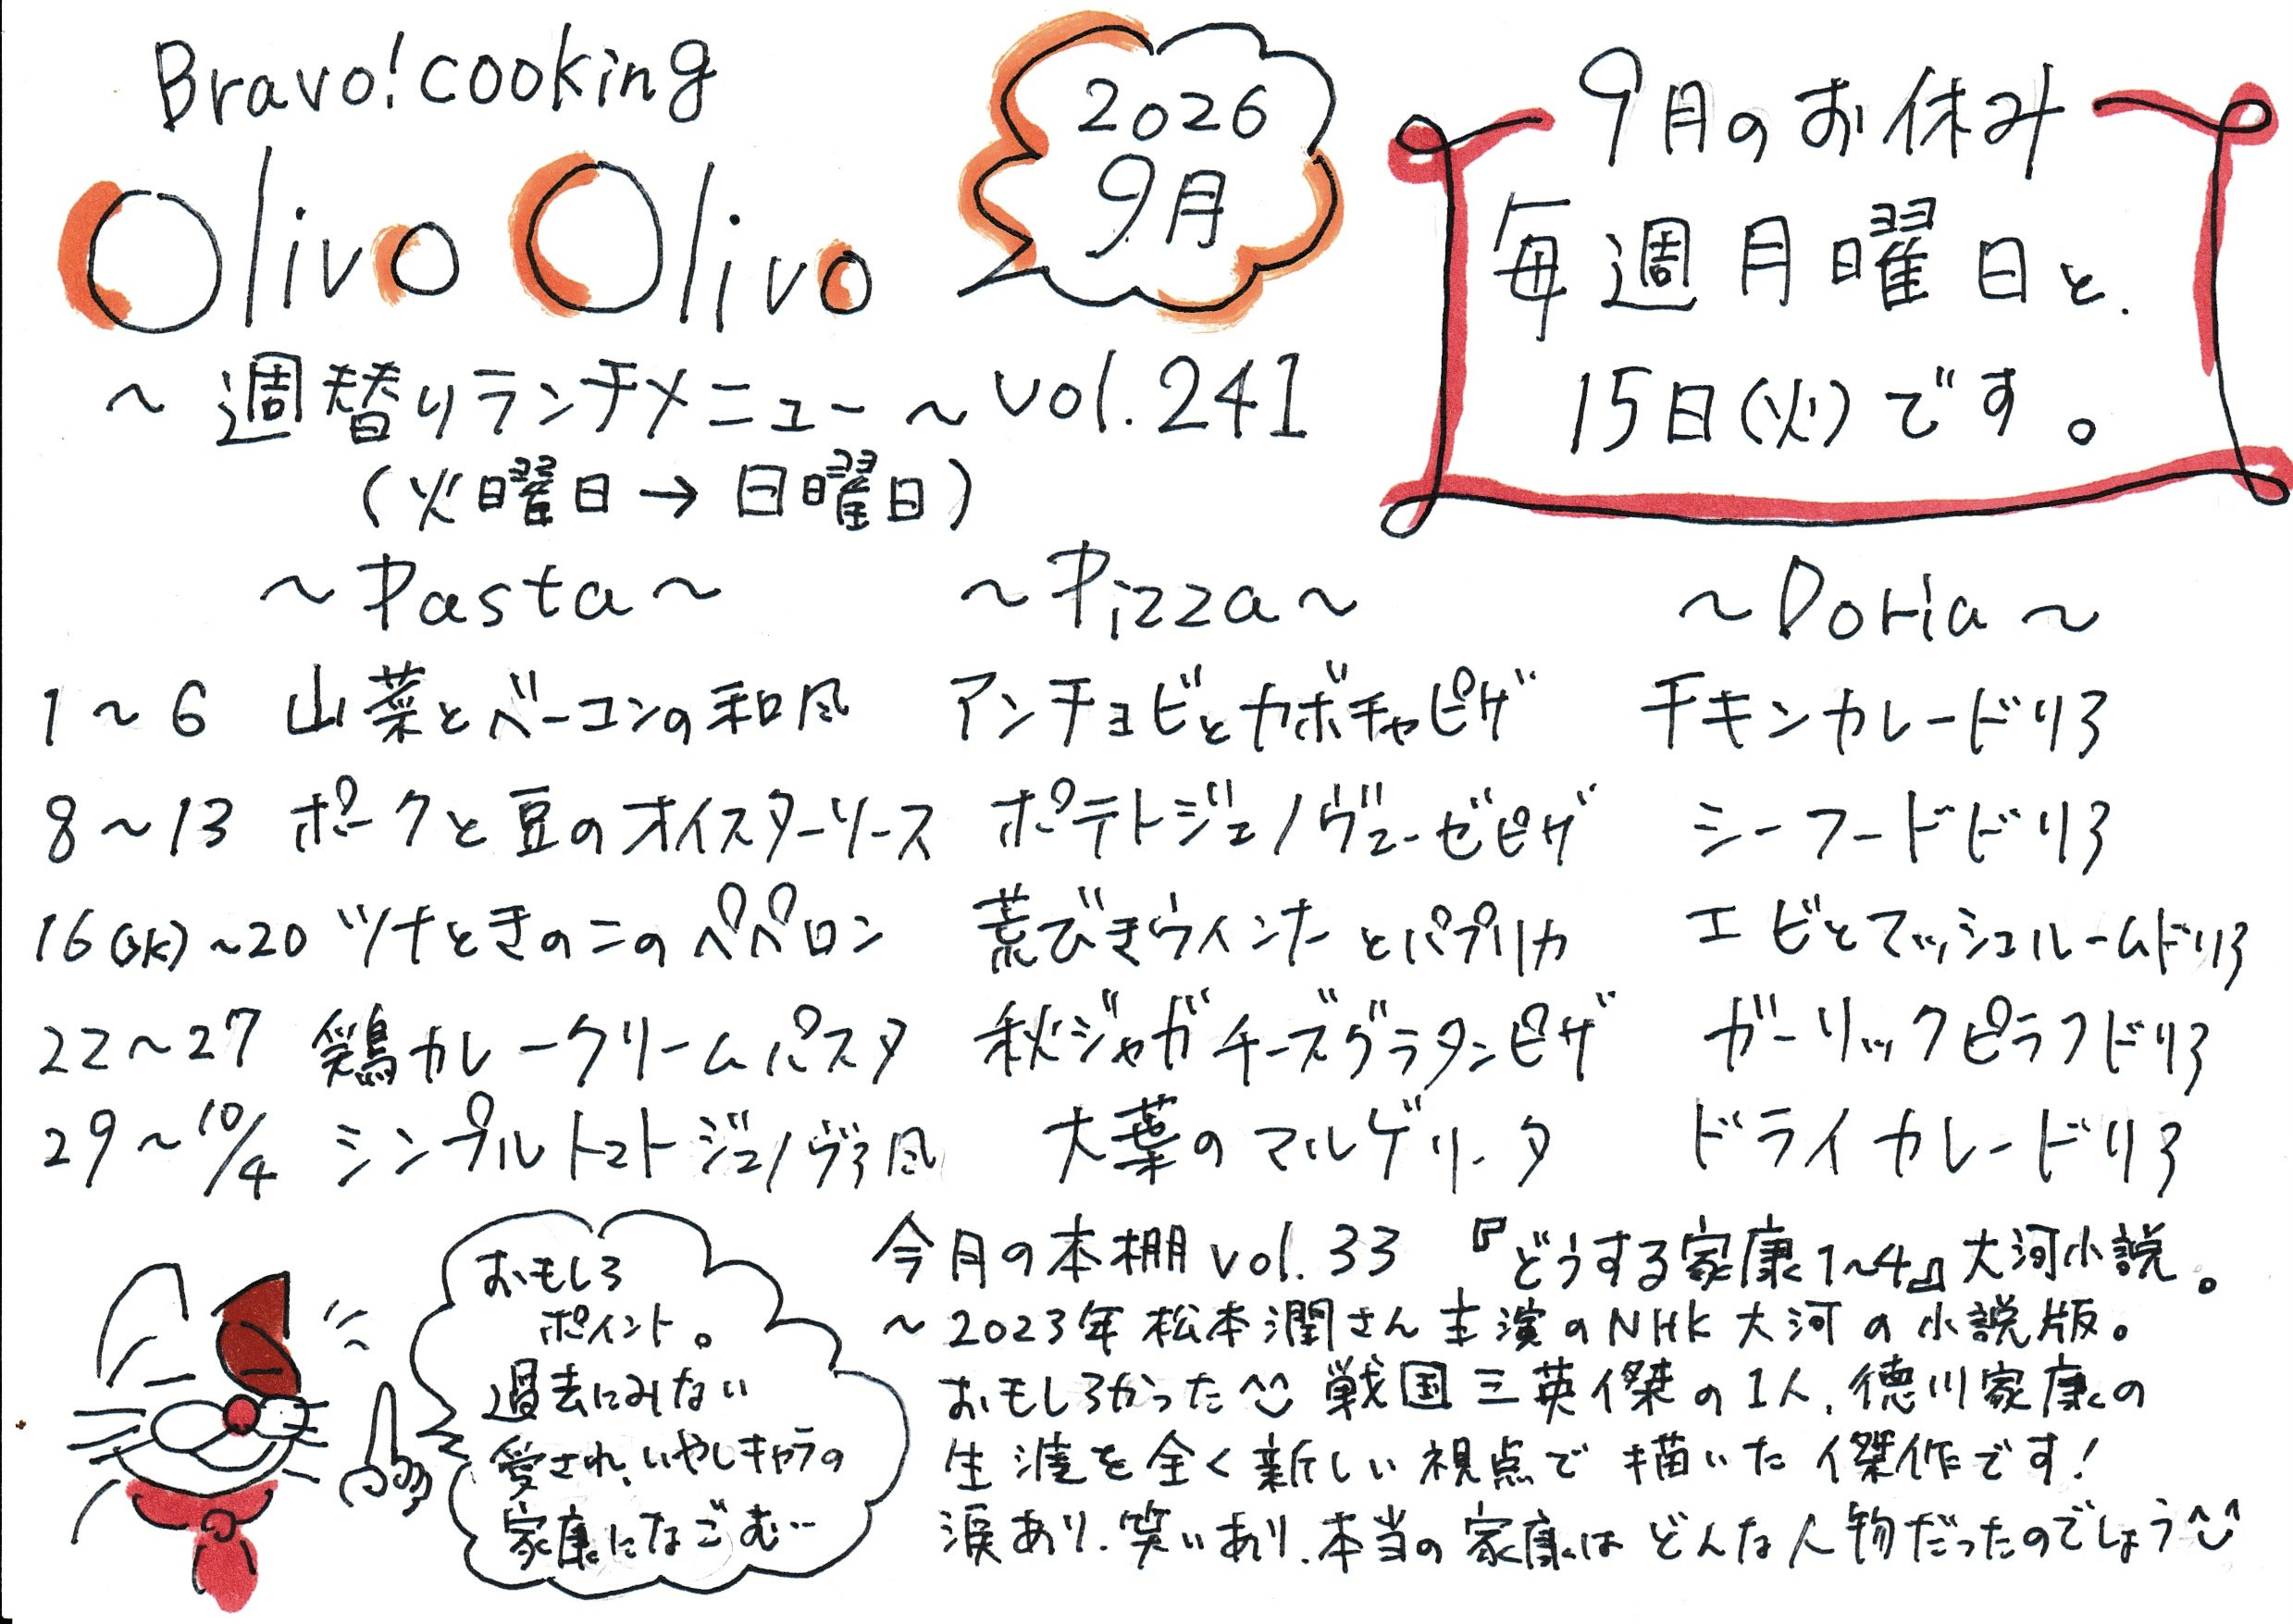 Bravo! cooking
Olivo Olivo
2026
9月
vol.241
9月のお休み
毎週月曜日と、
15日(火)です。
〜週替りランチメニュー〜
(火曜日→日曜日)
〜Pasta〜 〜Pizza〜 〜Doria〜
1〜6 山菜とベーコンの和風 アンチョビとカボチャピザ チキンカレードリア
8〜13 ポークと豆のオイスターソース ポテトジェノヴェーゼピザ シーフードドリア
16(水)〜20 ツナときのこのペペロン 荒びきウィンナーとパプリカ エビとマッシュルームドリア
22〜27 鶏カレークリームパスタ 秋ジャガチーズグラタンピザ ガーリックピラフドリア
29〜10/4 シンプルトマトジェノヴァ風 大葉のマルゲリータ ドライカレードリア
おもしろ
ポイント。
過去にみない
愛され、いやしキャラの
家康になごむ…
今月の本棚 vol.33 『どうする家康1〜4』大河小説。
〜2023年松本潤さん主演のNHK大河の小説版。
おもしろかった^^ 戦国三英傑の1人、徳川家康の
生涯を全く新しい視点で描いた傑作です!
涙あり、笑いあり、本当の家康はどんな人物だったのでしょう^^